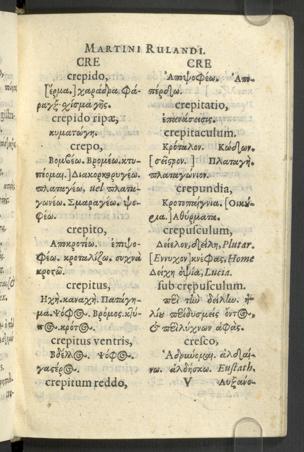 MARTINI RULANDI.
CRE
crepido,
[ἕρμα.] χαράδρα. Φά-
ραγξ. χίσμα γῆς.
crepido ripæ,
κυματωγή.
crepo,
Βομβέω. Βρομέω. κτυ-
πέομαι.] Διακορκορυγέω.
πλαταγέω, uel πλατα-
γωνέω. Σμαραγέω. ψο-
φέω.
crepito,
Αποκροτέω. ἐπιψο-
φέω. κροταλίζω. συχνὰ
κροτῶ.
crepitus,
Ηχή. καναχή. Παταγη-
μα. Ψόφος. Βρόμος. κτύ-
πος. κρότος.
crepitus ventris,
Βδόλος. ψόφος.
γαστρός.
crepitum reddo,
CRE
Ἀποψοφέω. Ἀπο-
πέρδω.
crepitatio,
crepitaculum.
Κρόταλον. Κώδων.
[σεῖστρον.] Πλαταγή.
πλαταγώνιον.
crepundia,
Ἀθύρματα.
crepusculum,
Δείελον, δείλη, Plutar.
κνέφας, Home
ὀψία, Lucia.
sub crepusculum.
περὶ τὴν δείλην. ἡ-
λίου περὶ δυσμὰς ὄντος,
ἁφάς.
cresco,
αὐξάν-
ω. ἀλδήσκω. Eustath.
V Αὐξανο-